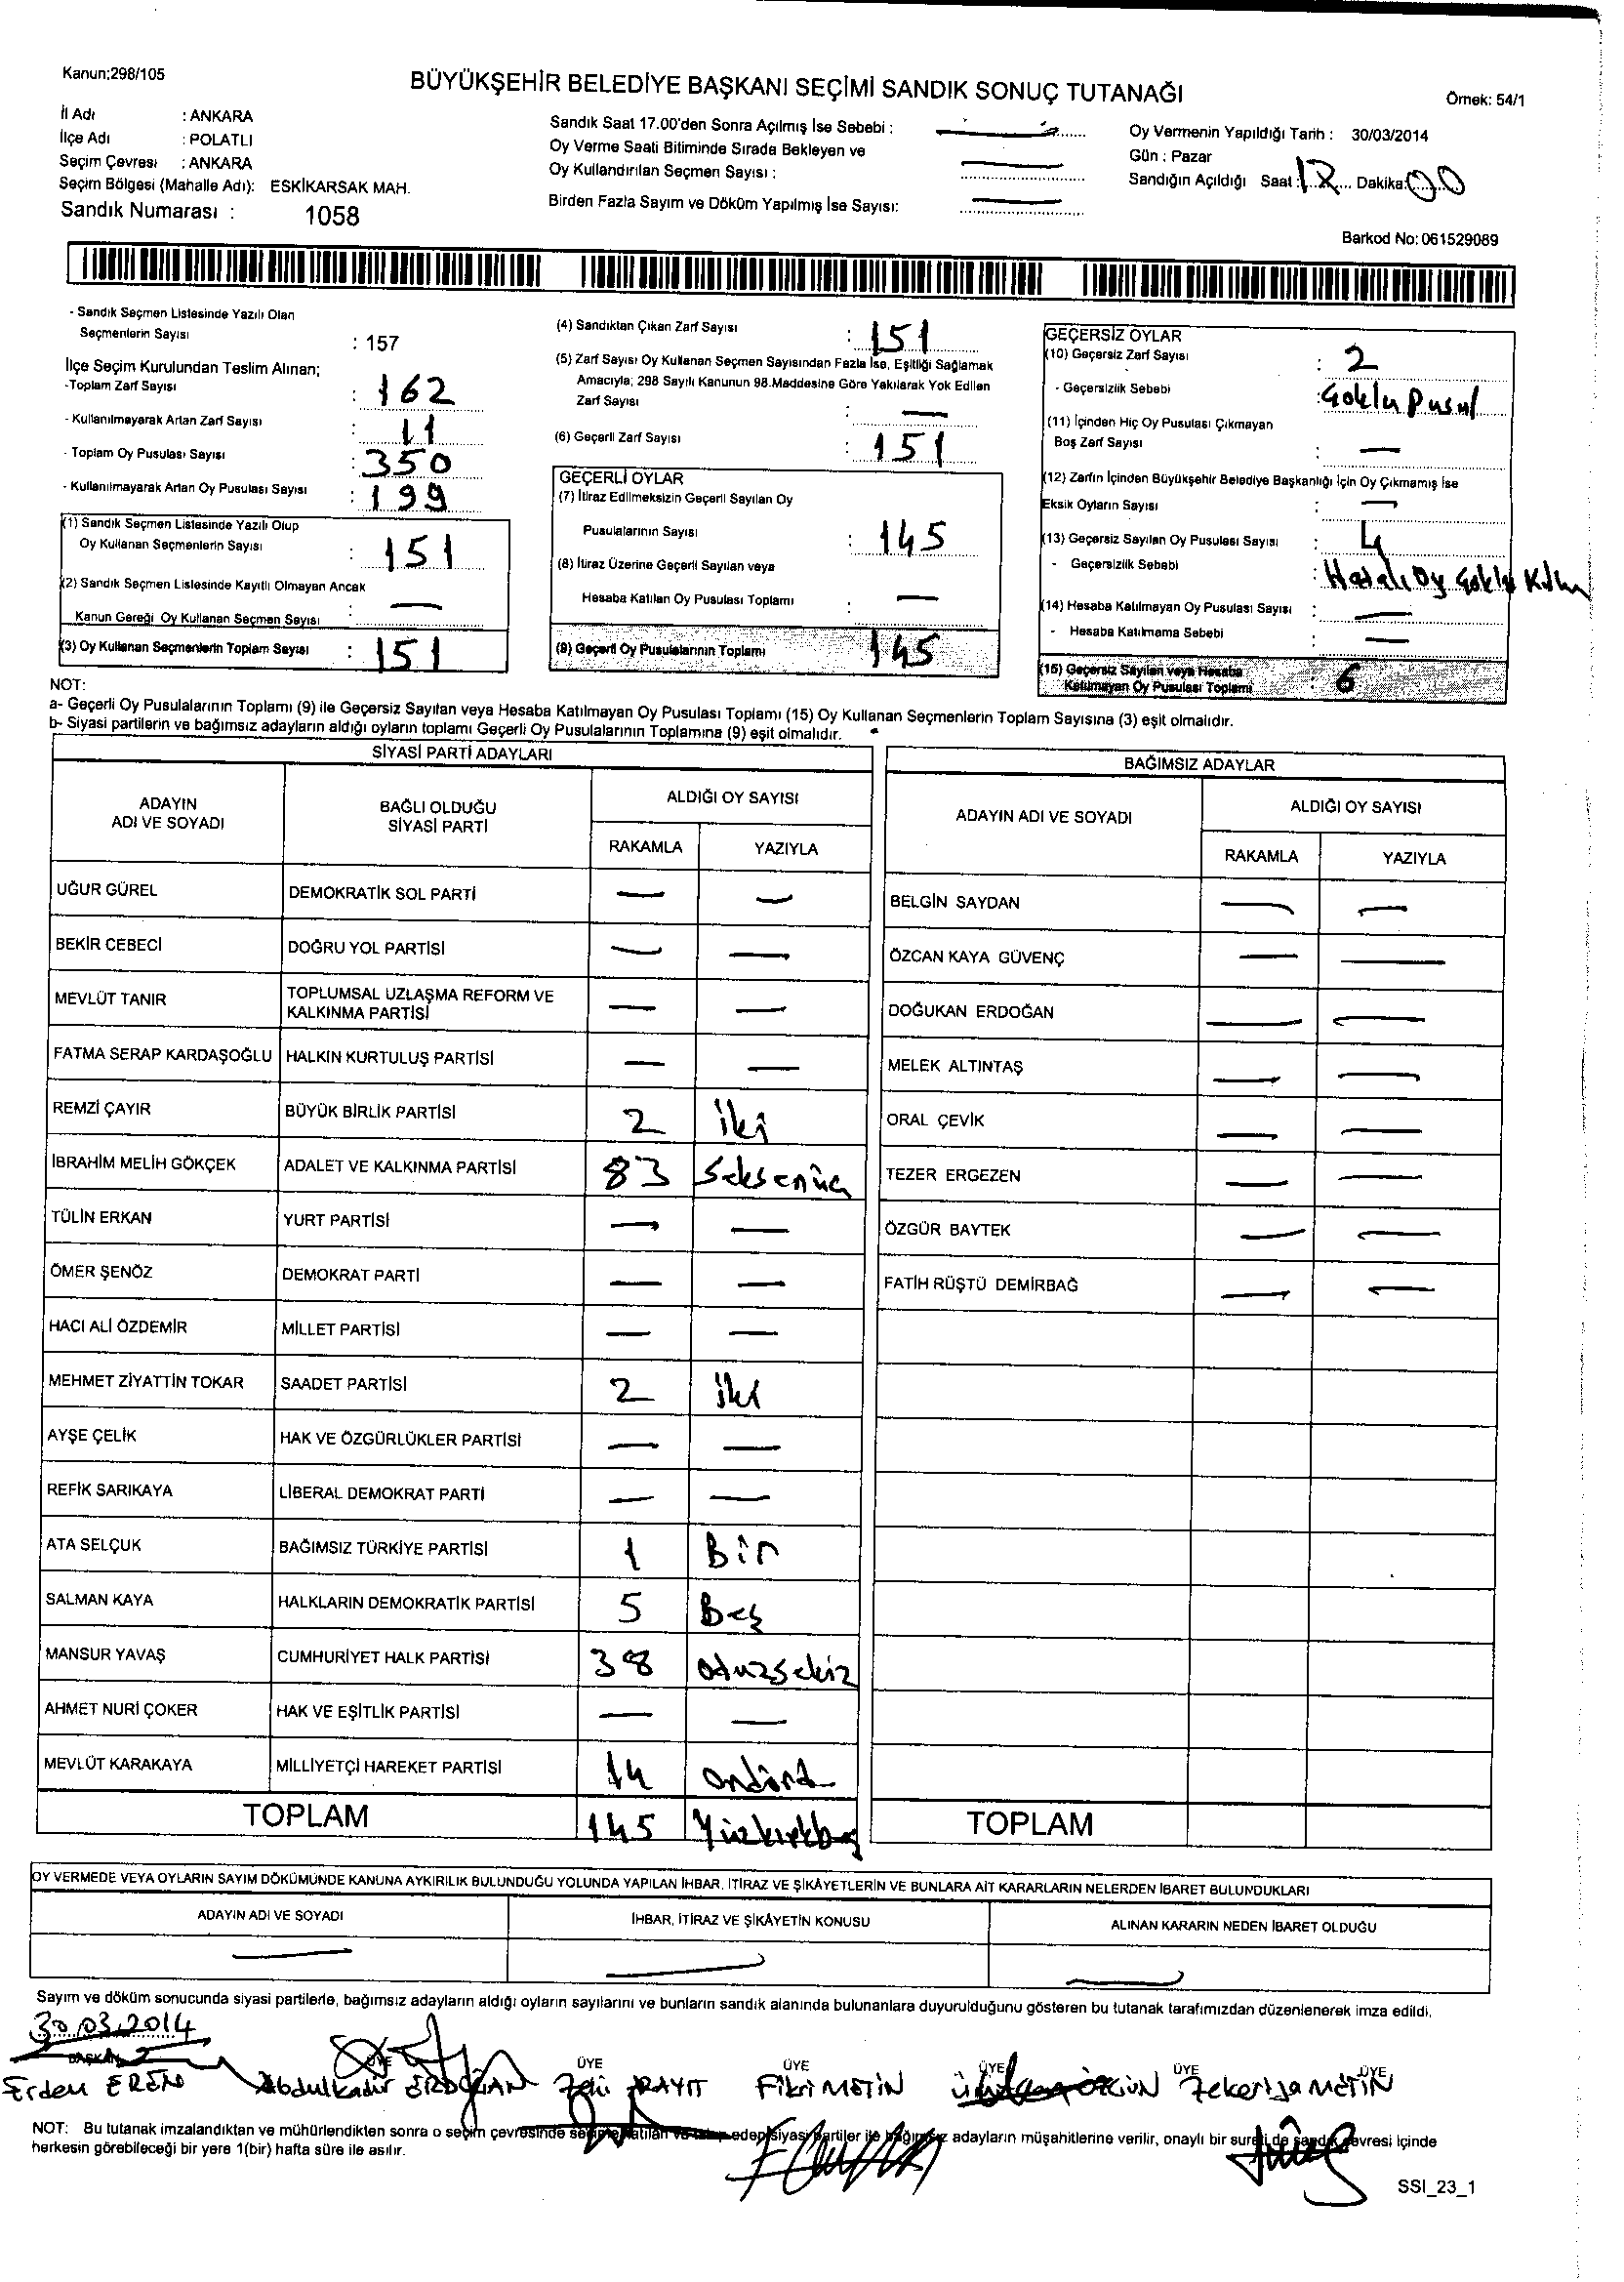 Kanun;298/105
BÜYÜKŞEHİR BELEDİYE BAŞKANI SEÇİMİ SANDIK SONUÇ TUTANAĞI
Örnek: 54/1
İl Adı : ANKARA
İlçe Adı : POLATLI
Seçim Çevresi : ANKARA
Seçim Bölgesi (Mahalle Adı): ESKİKARSAK MAH.
Sandık Numarası : 1058
Sandık Saat 17.00'den Sonra Açılmış İse Sebebi : —
Oy Verme Saati Bitiminde Sırada Bekleyen ve
Oy Kullandırılan Seçmen Sayısı : —
Birden Fazla Sayım ve Döküm Yapılmış İse Sayısı: —
Oy Vermenin Yapıldığı Tarih : 30/03/2014
Gün : Pazar
Sandığın Açıldığı Saat : Dakika: 00
Barkod No: 061529089
- Sandık Seçmen Listesinde Yazılı Olan
Seçmenlerin Sayısı : 157
İlçe Seçim Kurulundan Teslim Alınan;
-Toplam Zarf Sayısı : 162
- Kullanılmayarak Artan Zarf Sayısı : 11
- Toplam Oy Pusulası Sayısı : 350
- Kullanılmayarak Artan Oy Pusulası Sayısı : 199
(1) Sandık Seçmen Listesinde Yazılı Olup
Oy Kullanan Seçmenlerin Sayısı : 151
(2) Sandık Seçmen Listesinde Kayıtlı Olmayan Ancak
Kanun Gereği Oy Kullanan Seçmen Sayısı : —
(3) Oy Kullanan Seçmenlerin Toplam Sayısı : 151
(4) Sandıktan Çıkan Zarf Sayısı : 151
(5) Zarf Sayısı Oy Kullanan Seçmen Sayısından Fazla İse, Eşitliği Sağlamak
Amacıyla; 298 Sayılı Kanunun 98.Maddesine Göre Yakılarak Yok Edilen
Zarf Sayısı : —
(6) Geçerli Zarf Sayısı : 151
GEÇERLİ OYLAR
(7) İtiraz Edilmeksizin Geçerli Sayılan Oy
Pusulalarının Sayısı : 145
(8) İtiraz Üzerine Geçerli Sayılan veya
Hesaba Katılan Oy Pusulası Toplamı : —
(9) Geçerli Oy Pusulalarının Toplamı 145
GEÇERSİZ OYLAR
(10) Geçersiz Zarf Sayısı : 2
- Geçersizlik Sebebi :
(11) İçinden Hiç Oy Pusulası Çıkmayan
Boş Zarf Sayısı : —
(12) Zarfın İçinden Büyükşehir Belediye Başkanlığı İçin Oy Çıkmamış İse
Eksik Oyların Sayısı : —
(13) Geçersiz Sayılan Oy Pusulası Sayısı : 4
- Geçersizlik Sebebi : Hatalı Oy
(14) Hesaba Katılmayan Oy Pusulası Sayısı : —
- Hesaba Katılmama Sebebi : —
(15) Geçersiz Sayılan veya Hesaba
Katılmayan Oy Pusulası Toplamı : 6
NOT:
a- Geçerli Oy Pusulalarının Toplamı (9) ile Geçersiz Sayılan veya Hesaba Katılmayan Oy Pusulası Toplamı (15) Oy Kullanan Seçmenlerin Toplam Sayısına (3) eşit olmalıdır.
b- Siyasi partilerin ve bağımsız adayların aldığı oyların toplamı Geçerli Oy Pusulalarının Toplamına (9) eşit olmalıdır.
SİYASİ PARTİ ADAYLARI
ADAYIN ADI VE SOYADI BAĞLI OLDUĞU SİYASİ PARTİ ALDIĞI OY SAYISI
RAKAMLA YAZIYLA
UĞUR GÜREL DEMOKRATİK SOL PARTİ — —
BEKİR CEBECİ DOĞRU YOL PARTİSİ — —
MEVLÜT TANIR TOPLUMSAL UZLAŞMA REFORM VE KALKINMA PARTİSİ — —
FATMA SERAP KARDAŞOĞLU HALKIN KURTULUŞ PARTİSİ — —
REMZİ ÇAYIR BÜYÜK BİRLİK PARTİSİ 2 iki
İBRAHİM MELİH GÖKÇEK ADALET VE KALKINMA PARTİSİ 83 Seksenüç
TÜLİN ERKAN YURT PARTİSİ — —
ÖMER ŞENÖZ DEMOKRAT PARTİ — —
HACI ALİ ÖZDEMİR MİLLET PARTİSİ — —
MEHMET ZİYATTİN TOKAR SAADET PARTİSİ 2 iki
AYŞE ÇELİK HAK VE ÖZGÜRLÜKLER PARTİSİ — —
REFİK SARIKAYA LİBERAL DEMOKRAT PARTİ — —
ATA SELÇUK BAĞIMSIZ TÜRKİYE PARTİSİ 1 Bir
SALMAN KAYA HALKLARIN DEMOKRATİK PARTİSİ 5 Beş
MANSUR YAVAŞ CUMHURİYET HALK PARTİSİ 38 otuzsekiz
AHMET NURİ ÇOKER HAK VE EŞİTLİK PARTİSİ — —
MEVLÜT KARAKAYA MİLLİYETÇİ HAREKET PARTİSİ 14 ondört
TOPLAM 145 Yüzkırkbeş
BAĞIMSIZ ADAYLAR
ADAYIN ADI VE SOYADI ALDIĞI OY SAYISI
RAKAMLA YAZIYLA
BELGİN SAYDAN — —
ÖZCAN KAYA GÜVENÇ — —
DOĞUKAN ERDOĞAN — —
MELEK ALTINTAŞ — —
ORAL ÇEVİK — —
TEZER ERGEZEN — —
ÖZGÜR BAYTEK — —
FATİH RÜŞTÜ DEMİRBAĞ — —
TOPLAM
OY VERMEDE VEYA OYLARIN SAYIM DÖKÜMÜNDE KANUNA AYKIRILIK BULUNDUĞU YOLUNDA YAPILAN İHBAR, İTİRAZ VE ŞİKÂYETLERİN VE BUNLARA AİT KARARLARIN NELERDEN İBARET BULUNDUKLARI
ADAYIN ADI VE SOYADI İHBAR, İTİRAZ VE ŞİKÂYETİN KONUSU ALINAN KARARIN NEDEN İBARET OLDUĞU
— — —
Sayım ve döküm sonucunda siyasi partilerle, bağımsız adayların aldığı oyların sayılarını ve bunların sandık alanında bulunanlara duyurulduğunu gösteren bu tutanak tarafımızdan düzenlenerek imza edildi.
30.03.2014
BAŞKAN ÜYE ÜYE ÜYE ÜYE ÜYE ÜYE
Erden EREN Abdulkadir ERDOĞAN Fikri METİN Zekeriya METİN
NOT: Bu tutanak imzalandıktan ve mühürlendikten sonra o seçim çevresinde seçime katılan ve talep eden siyasi partiler ile bağımsız adayların müşahitlerine verilir, onaylı bir sureti de sandık çevresi içinde
herkesin görebileceği bir yere 1(bir) hafta süre ile asılır.
SSI_23_1